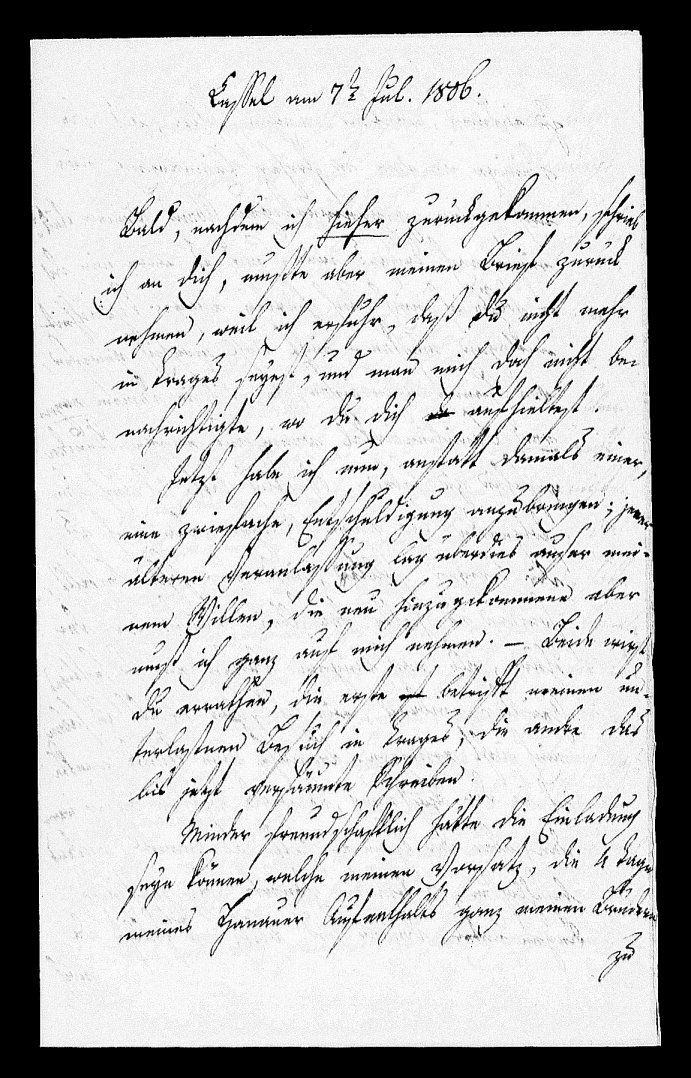 Cassel am 7t Jul. 1806.
Bald, nachdem ich hieher zurückgekommen, schrieb
ich an dich, mußte aber meinen Brief zurück
nehmen, weil ich erfuhr, daß du nicht mehr
in Trages seyest, und man mich doch nicht be-
nachrichtigte, wo du dich aufhieltest.
Jetzt habe ich nun, anstatt damals einer,
eine zwiefache, Entschuldigung anzubringen; jener
älteren Veranlassung lag überdies außer mei-
nem Willen, die neu hinzugekommene aber
muß ich ganz auf mich nehmen. – Beide wirst
du errathen, die erste betrifft meinen un-
terlaßnen Besuch in Trages, die andre das
bis jetzt versäumte Schreiben.
Minder freundschaftlich hätte die Einladung
seyn können, welche meinen Vorsatz, die 4 Tage
meines Hanauer Aufenthalts ganz meinen Brüdern
zu